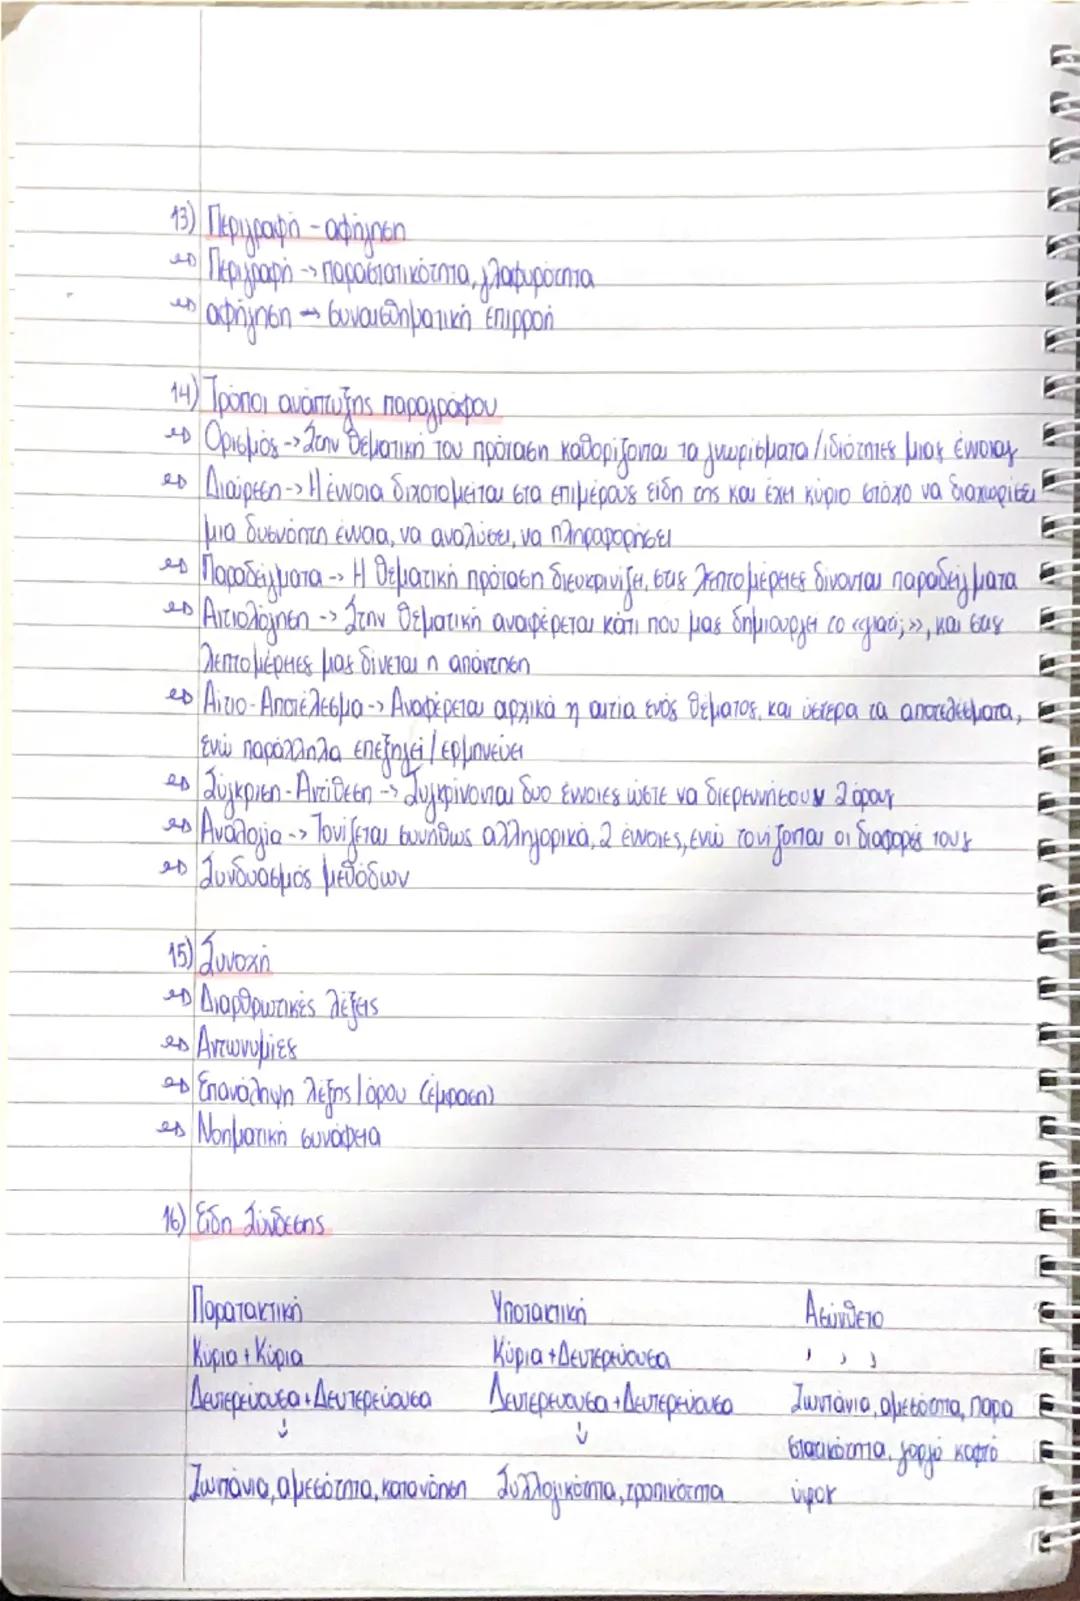 13) Περιγραφή - αφήγηση
Περιγραφή -> παραστατικότητα, γλαφυρότητα
αφήγηση -> συναισθηματική επιρροή
14) Τρόποι ανάπτυξης παραγράφου
Ορισμός -> Στην θεματική του πρόταση καθορίζονται τα γνωρίσματα / ιδιότητες μιας έννοιας
Διαίρεση -> Η έννοια διχοτομείται στα επιμέρους είδη της και έχει κύριο στόχο να διαχωρίσει
μια δυσνόητη έννοια, να αναλύσει, να πληροφορήσει
Παραδείγματα -> Η θεματική πρόταση διευκρινίζει, στις λεπτομέρειες δίνονται παραδείγματα
Αιτιολόγηση -> Στην θεματική αναφέρεται κάτι που μας δημιουργεί το «γιατί;», και στις
λεπτομέρειες μας δίνεται η απάντηση
Αίτιο - Αποτέλεσμα -> Αναφέρεται αρχικά η αιτία ενός θέματος, και ύστερα τα αποτελέσματα,
ενώ παράλληλα επεξηγεί / ερμηνεύει
Σύγκριση - Αντίθεση -> Συγκρίνονται δυο έννοιες ώστε να διερευνήσουν 2 όρους
Αναλογία -> Τονίζεται συνήθως αλληγορικά, 2 έννοιες, ενώ τονίζονται οι διαφορές τους
Συνδυασμός μεθόδων
15) Συνοχή
Διαρθρωτικές λέξεις
Αντωνυμίες
Επανάληψη λέξης / όρου (έμφαση)
Νοηματική συνάφεια
16) Είδη Σύνδεσης
Παρατακτική Υποτακτική Ασύνδετο
Κύρια + Κύρια Κύρια + Δευτερεύουσα , , ,
Δευτερεύουσα + Δευτερεύουσα Δευτερεύουσα + Δευτερεύουσα Ζωντάνια, αμεσότητα, παρα
στατικότητα, γοργό κοφτό
Ζωντάνια, αμεσότητα, κατανόηση Συλλογικότητα, τροπικότητα ύφος